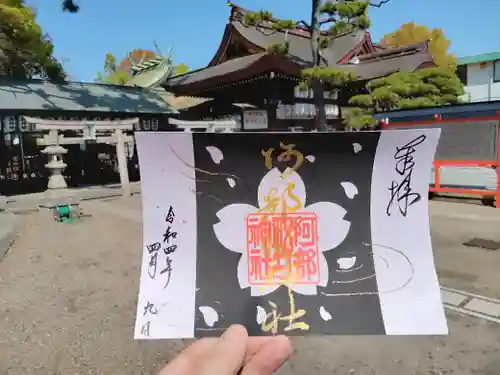 奉拝
阿部野神社
阿部
野
神社
令和四年
四月
九日